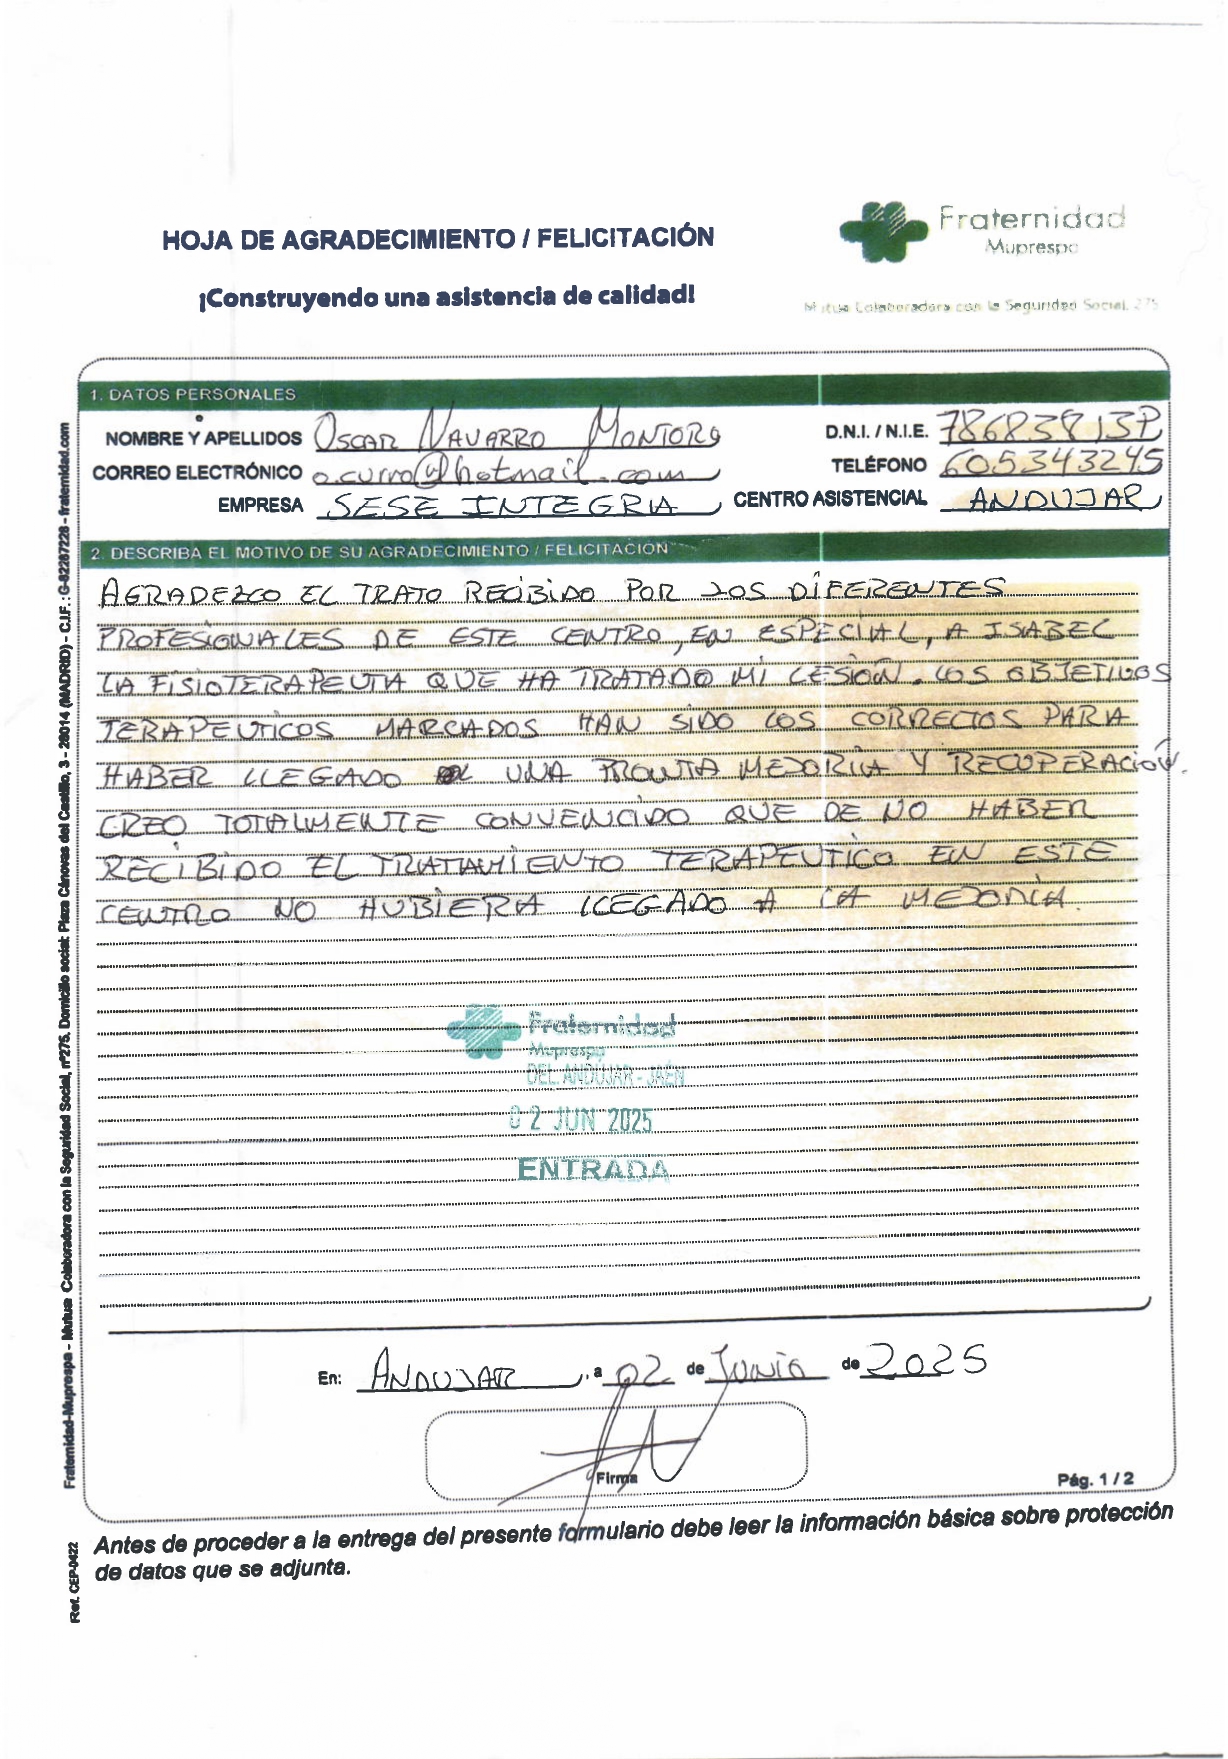 HOJA DE AGRADECIMIENTO / FELICITACIÓN
¡Construyendo una asistencia de calidad!
Fraternidad
Muprespa
Mutua Colaboradora con la Seguridad Social, 275
1. DATOS PERSONALES
NOMBRE Y APELLIDOS OSCAR NAVARRO MONTORO
D.N.I. / N.I.E. 78683813P
CORREO ELECTRÓNICO o.curro@hotmail.com
TELÉFONO 605343245
EMPRESA SESE INTEGRIA
CENTRO ASISTENCIAL ANDUJAR
2. DESCRIBA EL MOTIVO DE SU AGRADECIMIENTO / FELICITACIÓN
AGRADEZCO EL TRATO RECIBIDO POR LOS DIFERENTES
PROFESIONALES DE ESTE CENTRO, EN ESPECIAL, A ISABEL
LA FISIOTERAPEUTA QUE HA TRATADO MI LESIÓN. LOS OBJETIVOS
TERAPEUTICOS MARCADOS HAN SIDO LOS CORRECTOS PARA
HABER LLEGADO UNA PRONTA MEJORIA Y RECUPERACIÓN.
CREO TOTALMENTE CONVENCIDO QUE DE NO HABER
RECIBIDO EL TRATAMIENTO TERAPEUTICO EN ESTE
CENTRO NO HUBIERA LLEGADO A LA MEJORÍA.
Fraternidad
Muprespa
DEL. ANDÚJAR - JAÉN
02 JUN 2025
ENTRADA
En: ANDUJAR, a 02 de JUNIO de 2025
Firma
Pág. 1 / 2
Antes de proceder a la entrega del presente formulario debe leer la información básica sobre protección
de datos que se adjunta.
Fraternidad-Muprespa - Mutua Colaboradora con la Seguridad Social, nº275. Domicilio social: Plaza Cánovas del Castillo, 3 - 28014 (MADRID) - C.I.F.: G-82287228 - fraternidad.com
Ref. CEP-0422